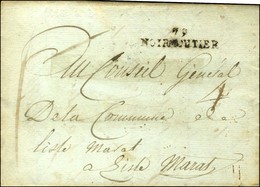 79
NOIRMOUTIER
Au Conseil Général
De la Commune de
lisle Marat
a Lisle Marat